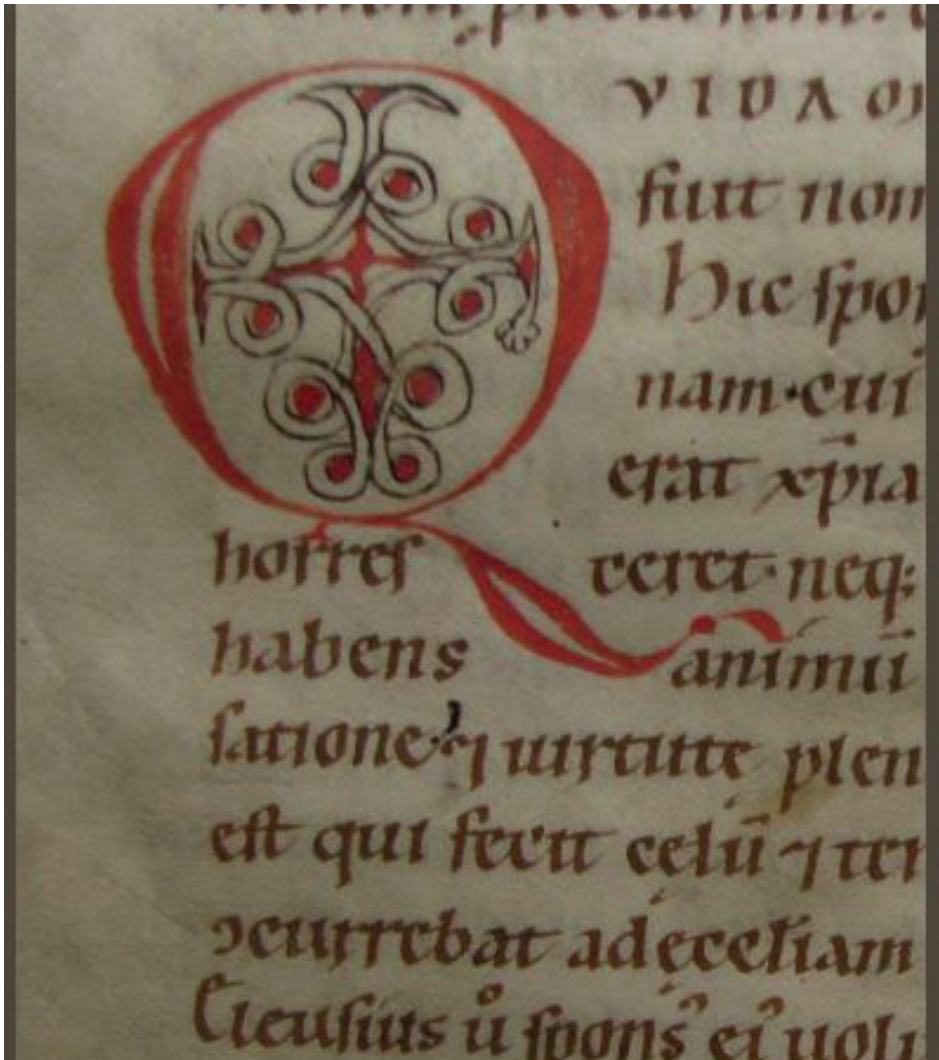 QVIDA
fuit nom
Hic spon
nam·cui
erat xp̄ia
horres ceret·neq;
habens animū
satione·⁊ uirtute plen
est qui fecit celū ⁊ ter
ↄcurrebat ad ęccl̄iam
Eleusius ů spons᾿ ei᾿ uol